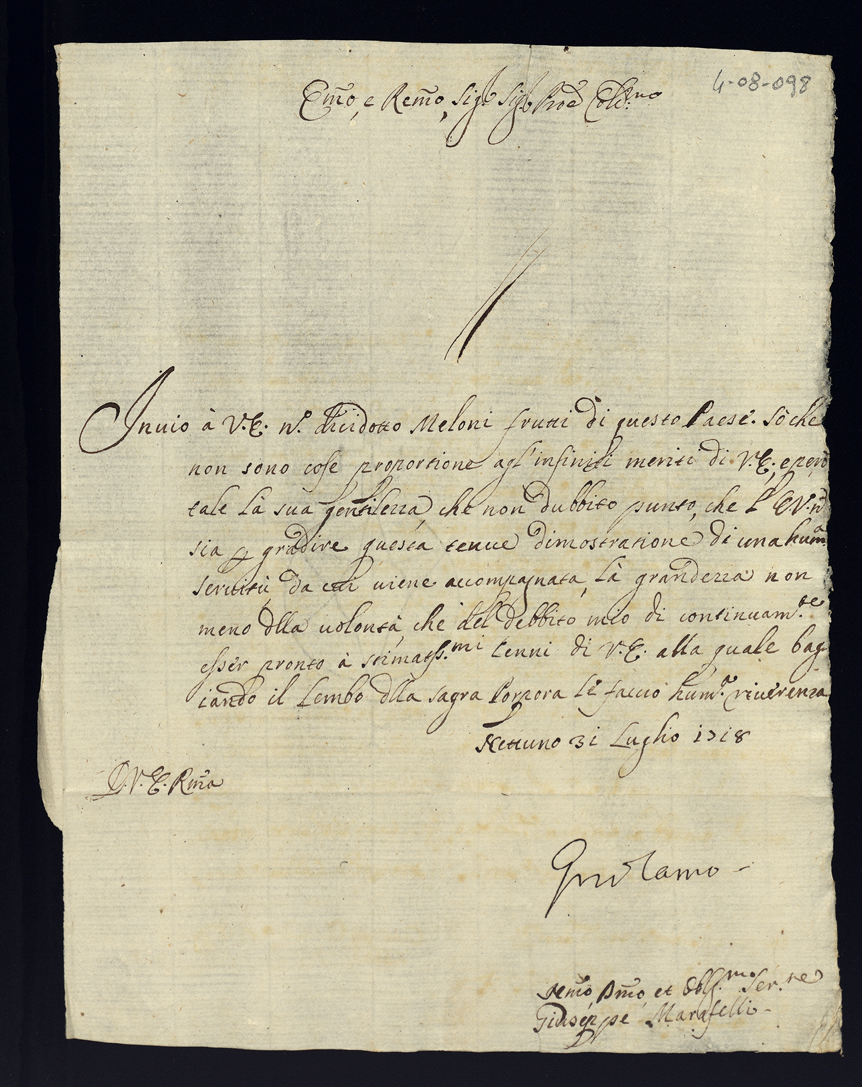 4-08-098
Em̃o, e Rem̃o, Sig.r Sig.r Pr̃oe Col.mo
Inuio à V.E. n.o dicidotto Meloni frutti di questo Paese. Sò che
non sono cose proportione agl'infiniti meriti di V.E., e però
tale là sua gentilezza, che non dubbito punto, che l'E.V. ñ
sia p gradire questa tenue dimostratione di una hum.a
seruitù, da cui uiene accompagnata, là grandezza non
meno dlla uolontà, che del debbito mio di continuam.te
esser pronto à stimatiss.mi Cenni di V.E. alla quale bag
iando il lembo dlla sagra Porpora le faccio hum.a riuerenza
Nettuno 31 Luglio 1718
D. V. E. Rm̃a
Hum̃o, Dm̃o, et Obl.mo Ser.re
Giuseppe Marafelli